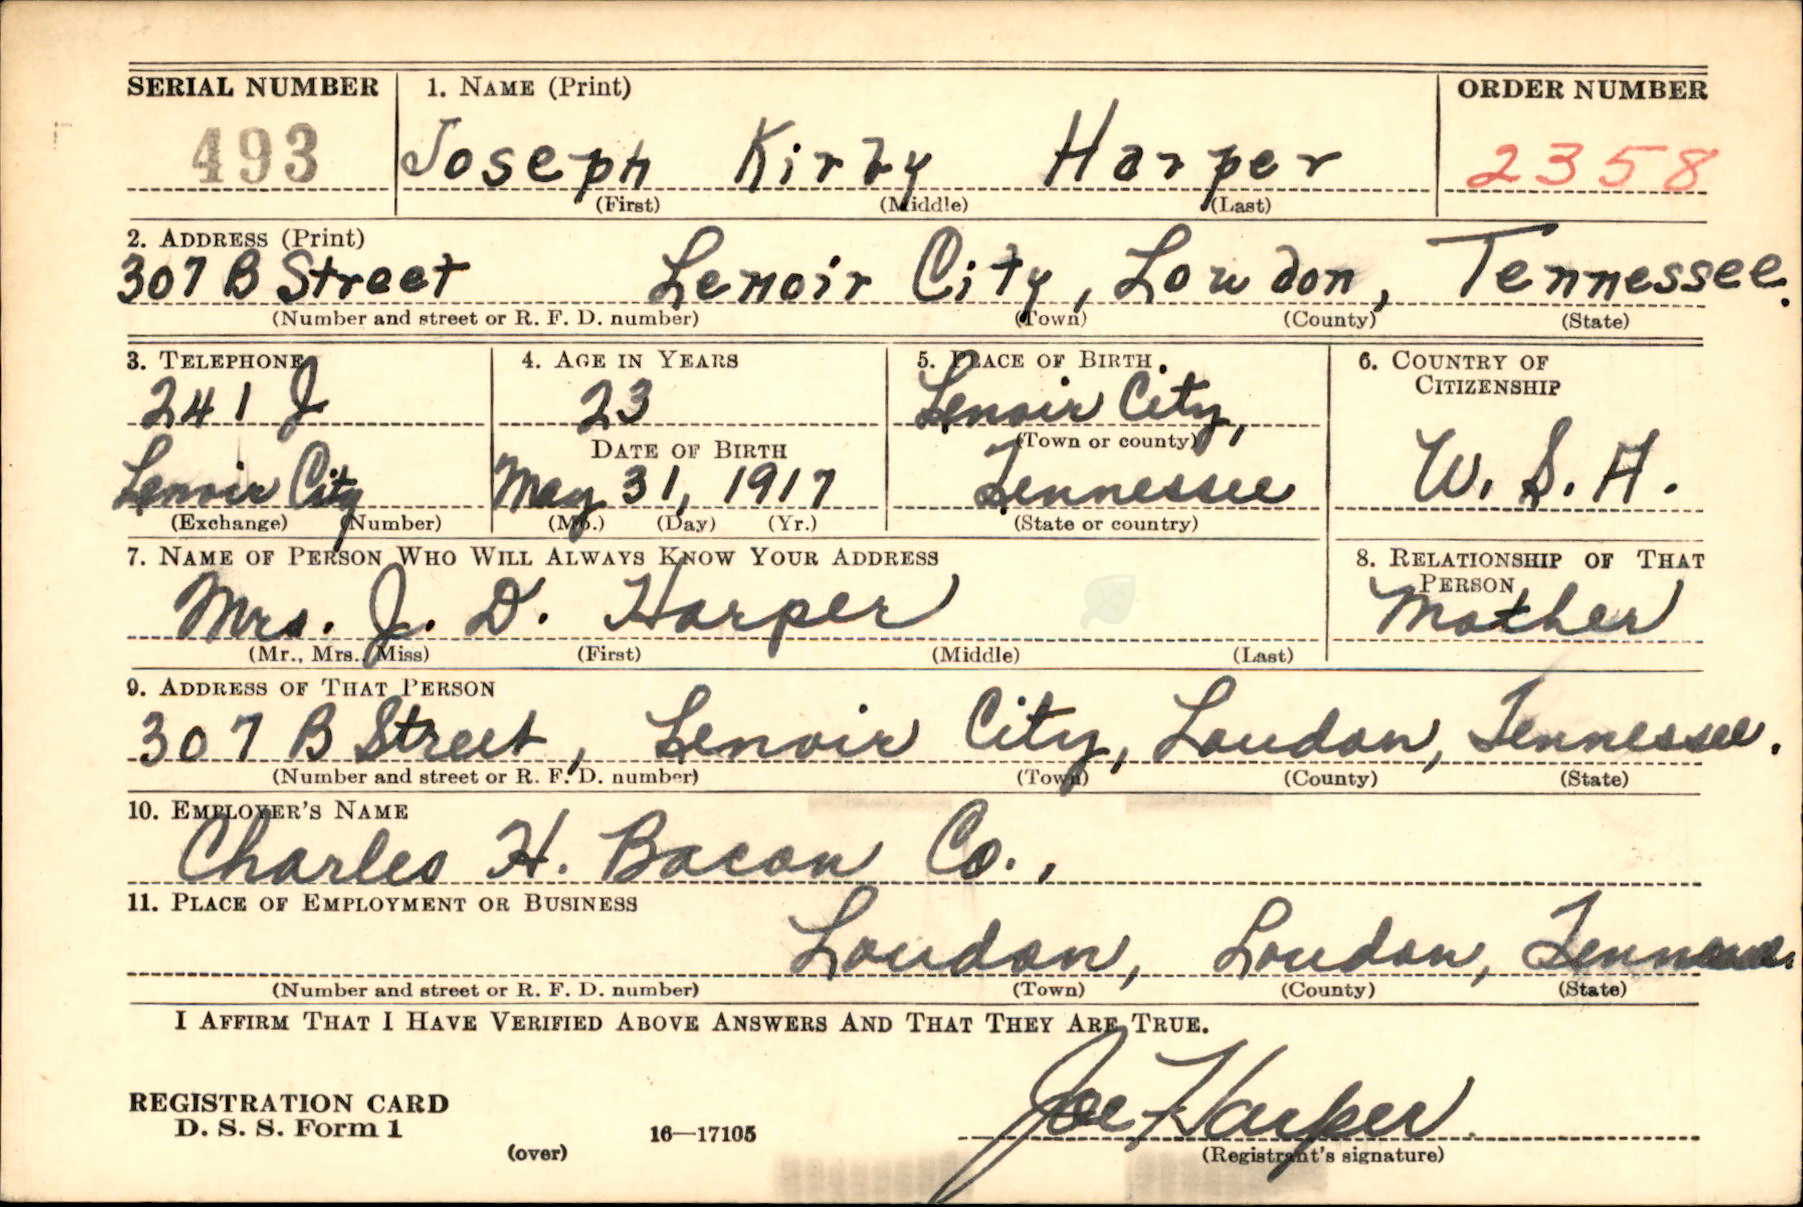 SERIAL NUMBER 1. NAME (Print) ORDER NUMBER
493 Joseph Kirby Harper 2358
(First) (Middle) (Last)
2. ADDRESS (Print)
307 B Street Lenoir City, Loudon, Tennessee.
(Number and street or R. F. D. number) (Town) (County) (State)
3. TELEPHONE 4. AGE IN YEARS 5. PLACE OF BIRTH 6. COUNTRY OF
CITIZENSHIP
241 J 23 Lenoir City,
DATE OF BIRTH (Town or county)
Lenoir City May 31, 1917 Tennessee U. S. A.
(Exchange) (Number) (Mo.) (Day) (Yr.) (State or country)
7. NAME OF PERSON WHO WILL ALWAYS KNOW YOUR ADDRESS 8. RELATIONSHIP OF THAT
PERSON
Mrs. J. D. Harper Mother
(Mr., Mrs., Miss) (First) (Middle) (Last)
9. ADDRESS OF THAT PERSON
307 B Street, Lenoir City, Loudon, Tennessee.
(Number and street or R. F. D. number) (Town) (County) (State)
10. EMPLOYER'S NAME
Charles H. Bacon Co.,
11. PLACE OF EMPLOYMENT OR BUSINESS
Loudon, Loudon, Tennessee.
(Number and street or R. F. D. number) (Town) (County) (State)
I AFFIRM THAT I HAVE VERIFIED ABOVE ANSWERS AND THAT THEY ARE TRUE.
Joe Harper
REGISTRATION CARD
D. S. S. Form 1 16—17105
(over) (Registrant's signature)